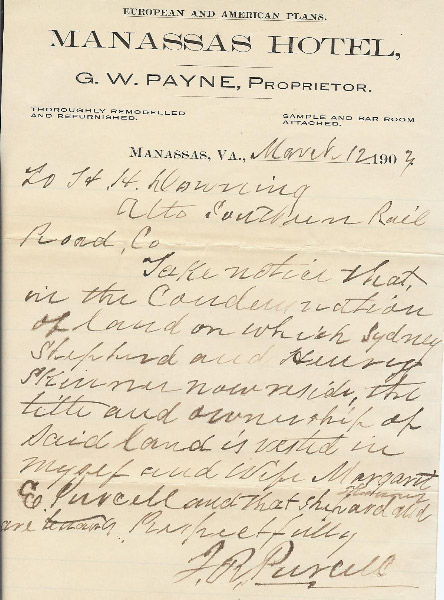 EUROPEAN AND AMERICAN PLANS.
MANASSAS HOTEL,
G. W. PAYNE, PROPRIETOR.
THOROUGHLY REMODELLED
AND REFURNISHED.
SAMPLE AND BAR ROOM
ATTACHED.
MANASSAS, VA., March 12 190
To H. H. Downing
Atto Southern Rail
Road, Co
Take notice that,
in the Condemnation
of land on which Sydney
Shepherd and Henry
Skinner now reside, the
title and ownership of
said land is vested in
myself and Wife Margaret
E Purcell and that Shepard and
are tenants Respectfully
J. R. Purcell